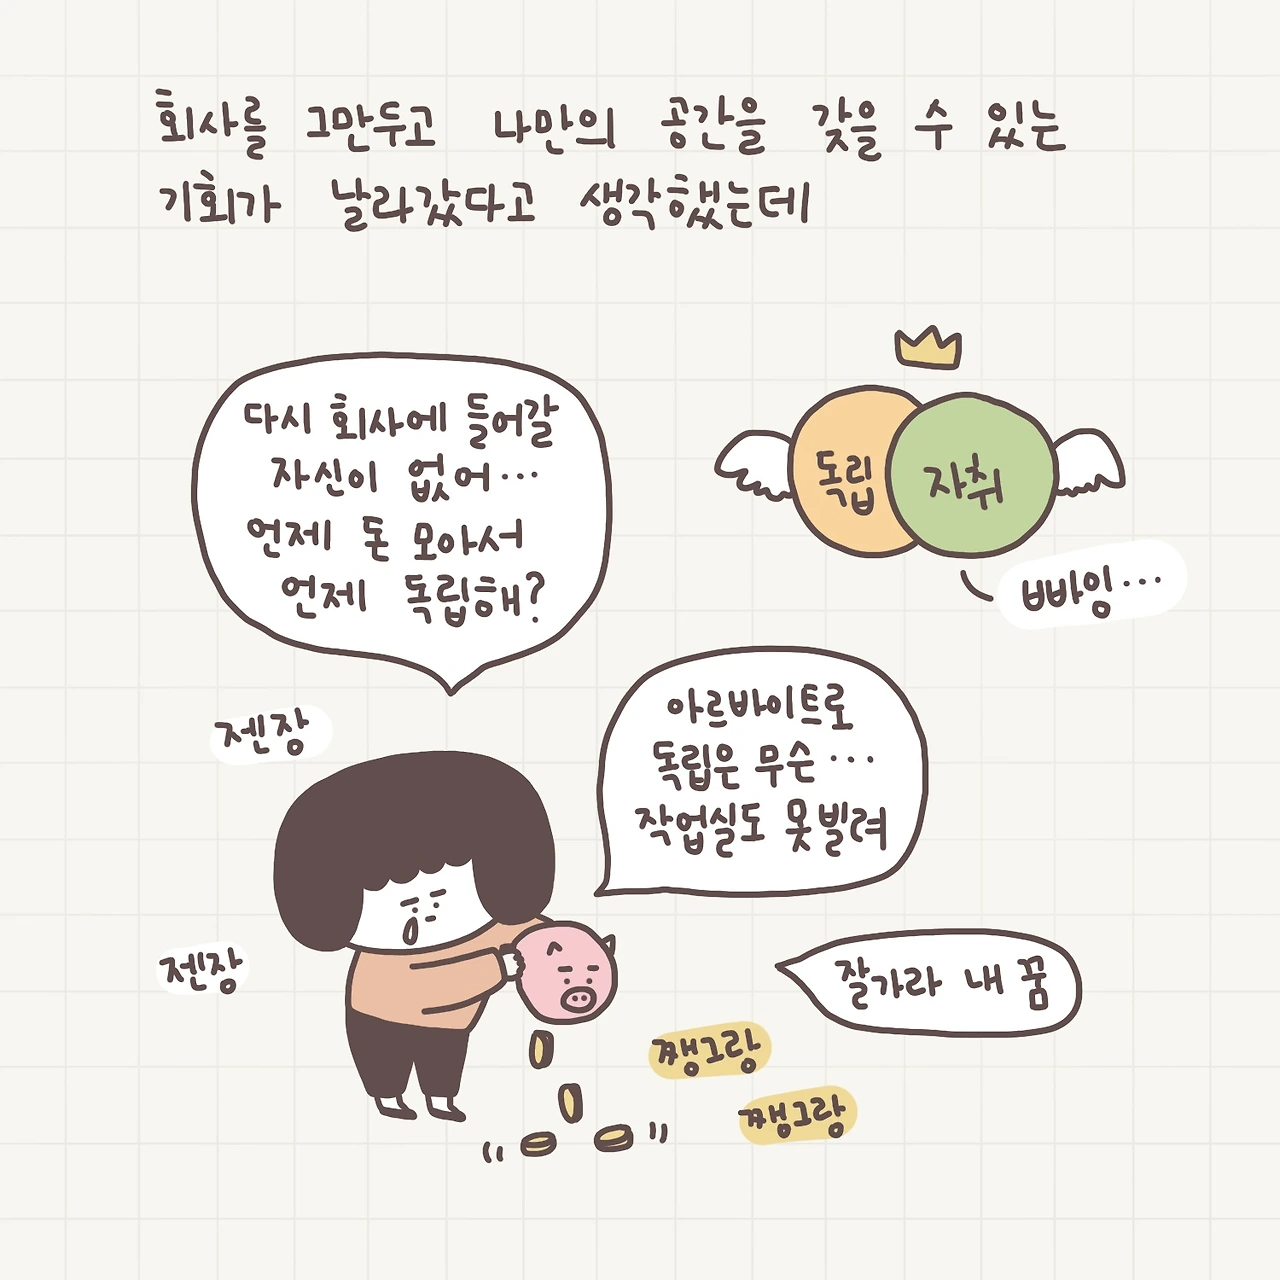 회사를 그만두고 나만의 공간을 갖을 수 있는
기회가 날라갔다고 생각했는데
다시 회사에 들어갈
자신이 없어...
언제 돈 모아서
언제 독립해?
독립
자취
빠잉...
아르바이트로
독립은 무슨...
작업실도 못빌려
젠장
젠장
잘가라 내 꿈
쨍그랑
쨍그랑